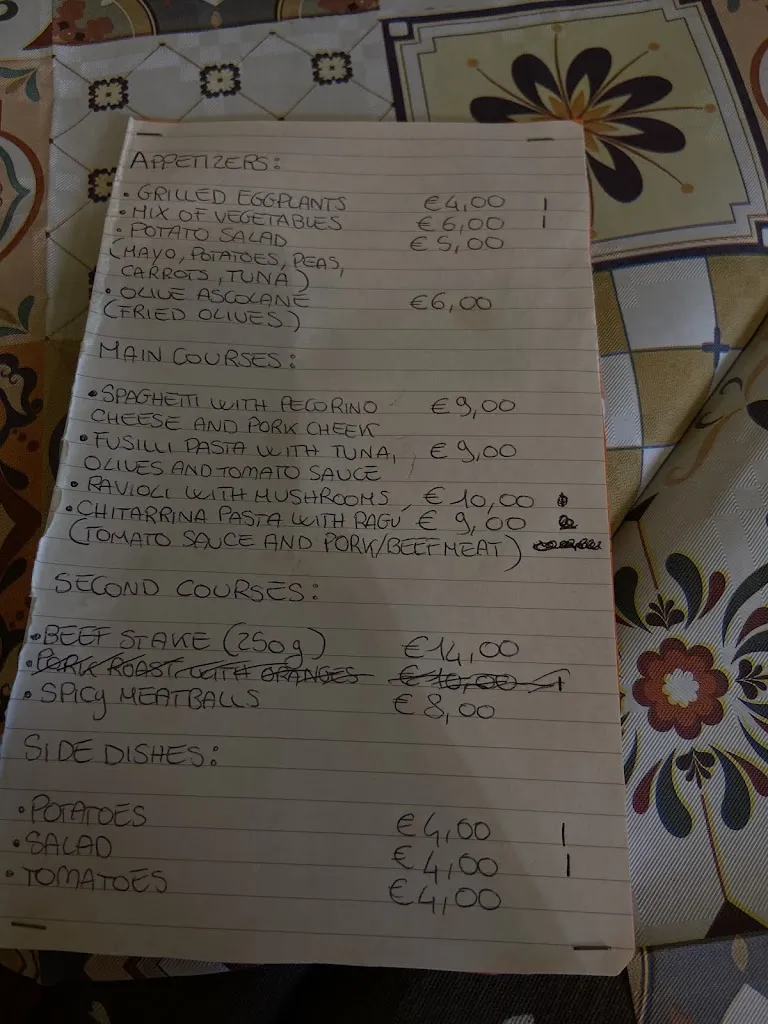 APPETIZERS:
• GRILLED EGGPLANTS €4,00 I
• MIX OF VEGETABLES €6,00 I
• POTATO SALAD €5,00
(MAYO, POTATOES, PEAS,
CARROTS, TUNA)
• OLIVE ASCOLANE €6,00
(FRIED OLIVES)
MAIN COURSES:
• SPAGHETTI WITH PECORINO €9,00
CHEESE AND PORK CHEEK
• FUSILLI PASTA WITH TUNA, €9,00
OLIVES AND TOMATO SAUCE
• RAVIOLI WITH MUSHROOMS, €10,00
• CHITARRINA PASTA WITH RAGU €9,00
(TOMATO SAUCE AND PORK/BEEF MEAT)
SECOND COURSES:
• BEEF STAKE (250g) €14,00
• PORK ROAST WITH ORANGES €10,00 I
• SPICY MEATBALLS €8,00
SIDE DISHES:
• POTATOES €4,00 I
• SALAD €4,00 I
• TOMATOES €4,00